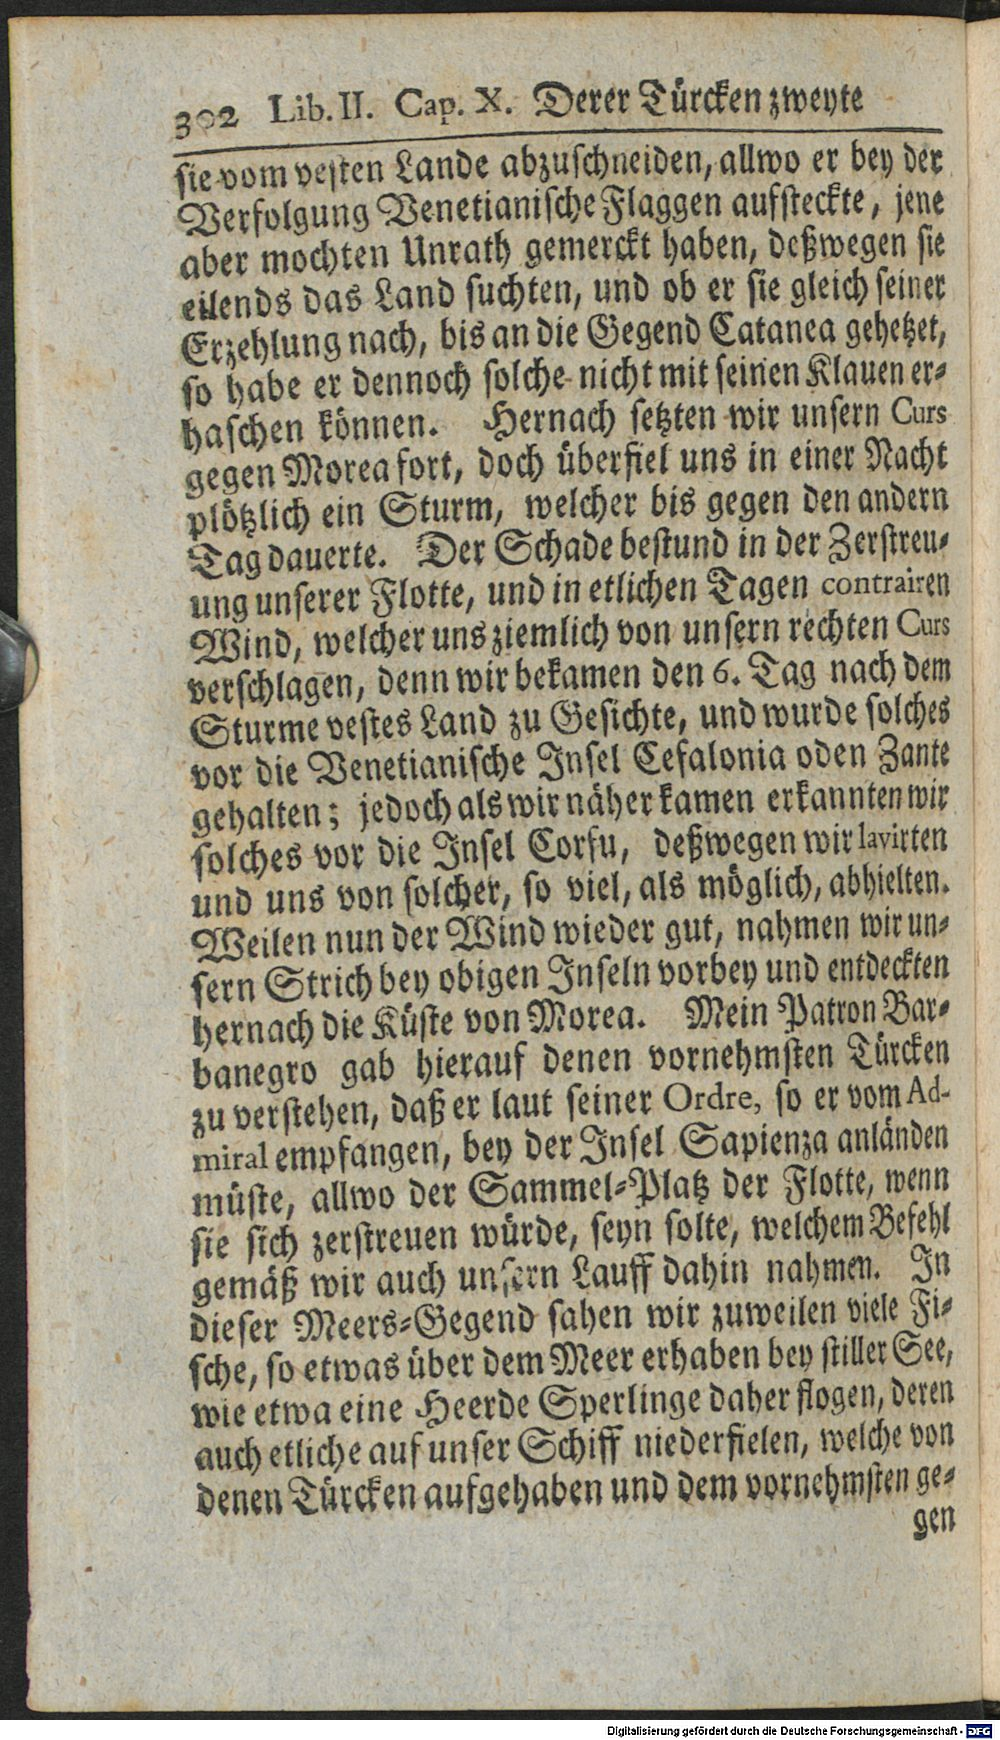 302 Lib. II. Cap. X. Derer Türcken zweyte
sie vom vesten Lande abzuschneiden, allwo er bey der
Verfolgung Venetianische Flaggen aufsteckte, jene
aber mochten Unrath gemerckt haben, deßwegen sie
eilends das Land suchten, und ob er sie gleich seiner
Erzehlung nach, bis an die Gegend Catanea gehetzet,
so habe er dennoch solche nicht mit seinen Klauen er-
haschen können. Hernach setzten wir unsern Curs
gegen Morea fort, doch überfiel uns in einer Nacht
plötzlich ein Sturm, welcher bis gegen den andern
Tag dauerte. Der Schade bestund in der Zerstreu-
ung unserer Flotte, und in etlichen Tagen contrairen
Wind, welcher uns ziemlich von unsern rechten Curs
verschlagen, denn wir bekamen den 6. Tag nach dem
Sturme vestes Land zu Gesichte, und wurde solches
vor die Venetianische Insel Cefalonia oden Zante
gehalten; jedoch als wir näher kamen erkannten wir
solches vor die Insel Corfu, deßwegen wir lavirten
und uns von solcher, so viel, als möglich, abhielten.
Weilen nun der Wind wieder gut, nahmen wir un-
sern Strich bey obigen Inseln vorbey und entdeckten
hernach die Küste von Morea. Mein Patron Bar-
banegro gab hierauf denen vornehmsten Türcken
zu verstehen, daß er laut seiner Ordre, so er vom Ad-
miral empfangen, bey der Insel Sapienza anländen
müste, allwo der Sammel-Platz der Flotte, wenn
sie sich zerstreuen würde, seyn solte, welchem Befehl
gemäß wir auch unsern Lauff dahin nahmen. In
dieser Meers-Gegend sahen wir zuweilen viele Fi-
sche, so etwas über dem Meer erhaben bey stiller See,
wie etwa eine Heerde Sperlinge daher flogen, deren
auch etliche auf unser Schiff niederfielen, welche von
denen Türcken aufgehaben und dem vornehmsten ge-
gen
Digitalisierung gefördert durch die Deutsche Forschungsgemeinschaft - DFG